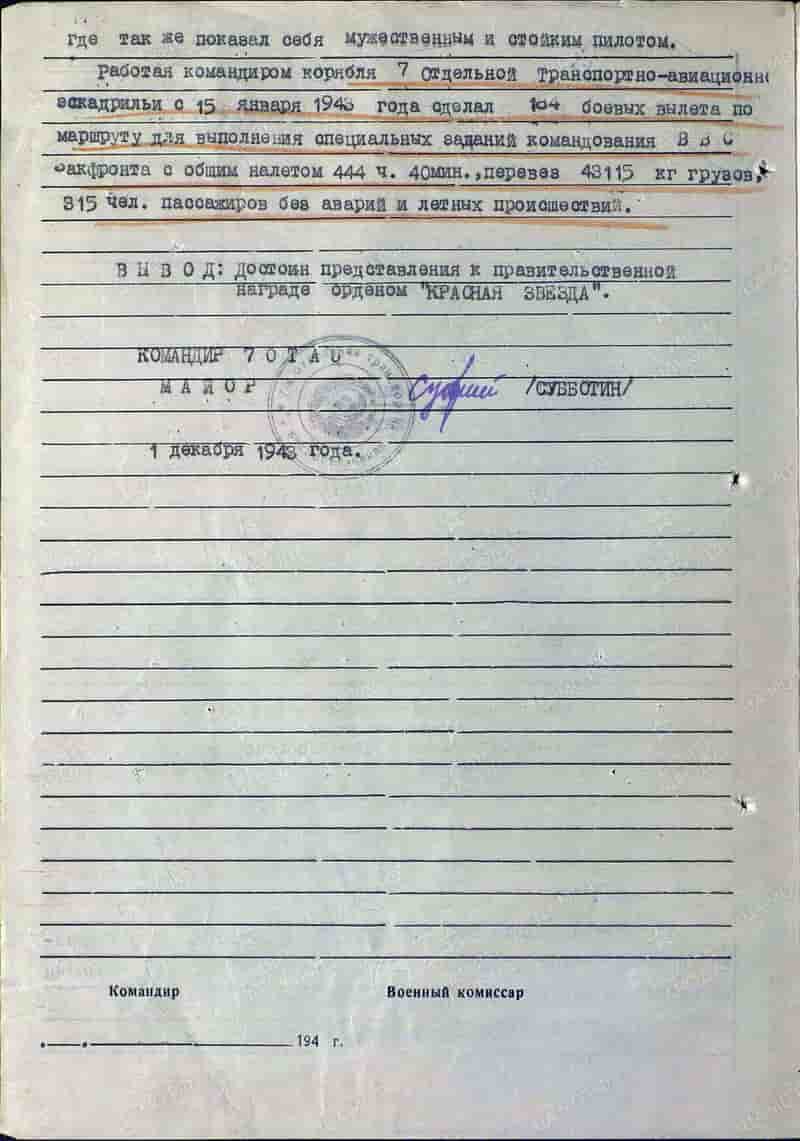 Где так же показал себя мужественным и стойким пилотом.
Работая командиром корябля 7 Отдельной Транспортно-авиационн
эскадрильи с 15 января 1943 года сделал 104 боевых вылета по
маршруту для выполнения специальных заданий командования В В С
акфронта с общим налетом 444 ч. 40мин., перевез 43115 кг грузов,
315 чел. пассажиров без аварий и летных происшествий.
В Ы В О Д: Достоин представления к правительственной
награде орденом "КРАСНАЯ ЗВЕЗДА".
КОМАНДИР 7 О Т А Э
М А Й О Р /СУББОТИН/
1 декабря 1943 года.
Командир Военный комиссар
194 г.